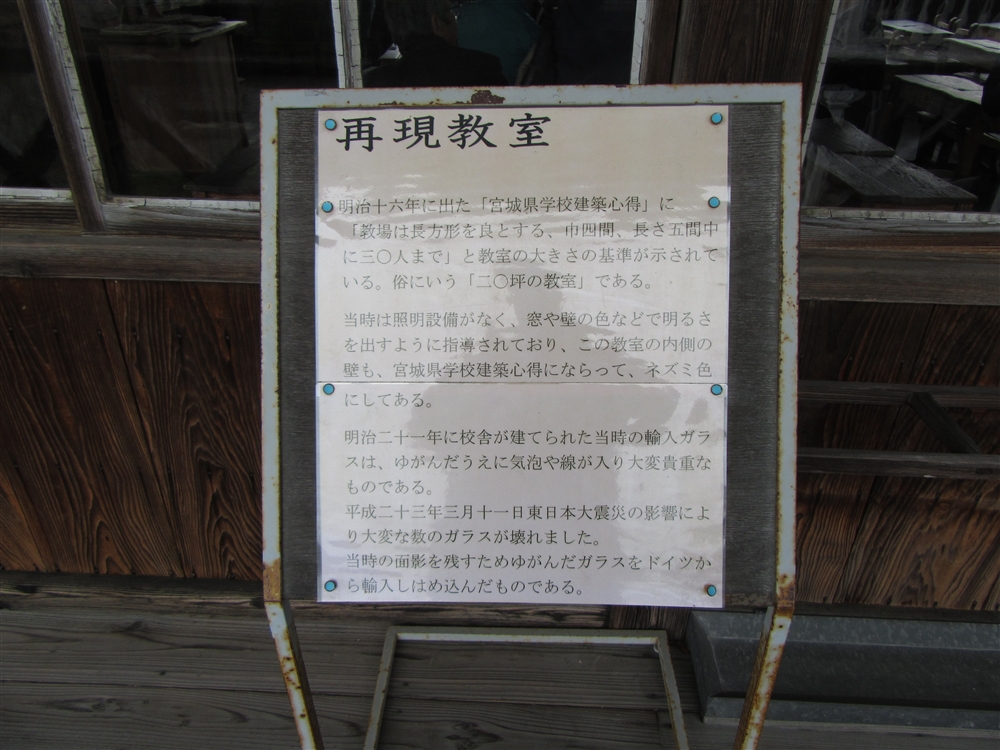 再現教室
明治十六年に出た「宮城県学校建築心得」に
「教場は長方形を良とする、巾四間、長さ五間中
に三〇人まで」と教室の大きさの基準が示されて
いる。俗にいう「二〇坪の教室」である。
当時は照明設備がなく、窓や壁の色などで明るさ
を出すように指導されており、この教室の内側の
壁も、宮城県学校建築心得にならって、ネズミ色
にしてある。
明治二十一年に校舎が建てられた当時の輸入ガラ
スは、ゆがんだうえに気泡や線が入り大変貴重な
ものである。
平成二十三年三月十一日東日本大震災の影響によ
り大変な数のガラスが壊れました。
当時の面影を残すためゆがんだガラスをドイツか
ら輸入しはめ込んだものである。